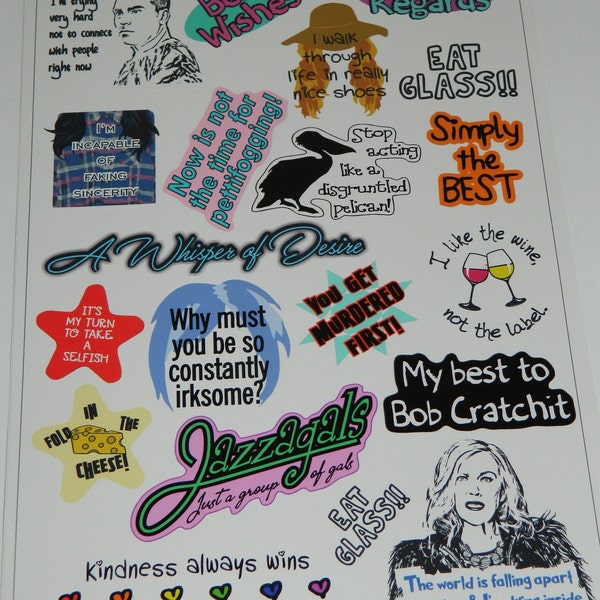 I'm trying
very hard
not to connect
with people
right now
Best
Wishes
Regards
I walk
through
life in really
nice shoes
EAT
GLASS!!
I'M
INCAPABLE
OF
FAKING
SINCERITY
Now is not
the time for
pettifogging!
Stop
acting
like a
disgruntled
pelican!
Simply
the
BEST
A Whisper of Desire
I like the wine,
not the label.
IT'S
MY TURN
TO TAKE
A
SELFISH
Why must
you be so
constantly
irksome?
YOU GET
MURDERED
FIRST!
My best to
Bob Cratchit
FOLD IN THE
CHEESE!
Jazzagals
Just a group of gals
EAT
GLASS!!
Kindness always wins
The world is falling apart
inside